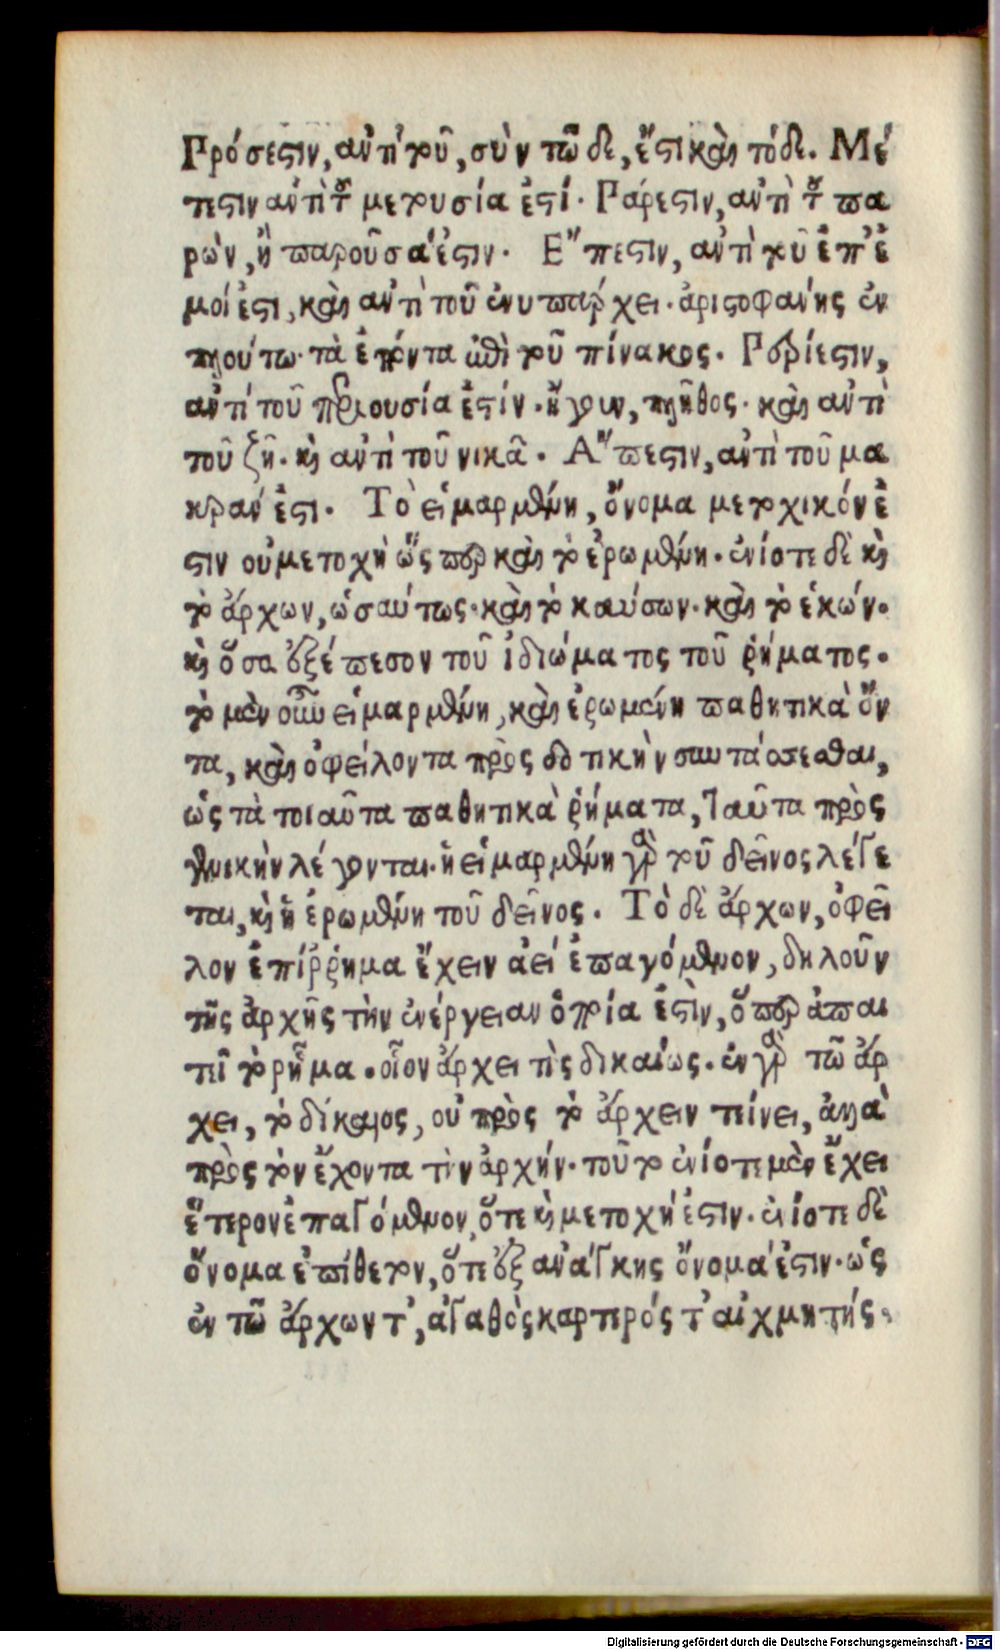 Πρόσεστιν, ἀντὶ τοῦ, σὺν τῶδε, ἔστι καὶ τόδε. Μέ
τεστιν ἀντὶ τοῦ μετουσία ἐστί. Πάρεστιν, ἀντὶ τοῦ πα
ρὼν, ἢ παροῦσα ἐστιν. Ἔπεστιν, ἀντὶ τοῦ ἐπ' ἐ
μοί ἐστι, καὶ ἀντὶ τοῦ ἐνυπάρχει. ἀριστοφάνης ἐν
πλούτω. τὰ ἐπόντα ἐπὶ τοῦ πίνακος. Περίεστιν,
ἀντὶ τοῦ περιουσία ἐστίν. ἤγουν, πλῆθος. καὶ ἀντὶ
τοῦ ζῆ. καὶ ἀντὶ τοῦ νικᾶ. Ἄπεστιν, ἀντὶ τοῦ μα
κράν ἐστι. Τὸ εἱμαρμένη, ὄνομα μετοχικόν ἐ
στιν οὐ μετοχὴ ὥσπερ καὶ τὸ ἐρωμένη. ἐνίοτε δὲ καὶ
τὸ ἄρχων, ὡσαύτως. καὶ τὸ καύσων. καὶ τὸ ἑκών.
καὶ ὅσα ἐξέπεσον τοῦ ἰδιώματος τοῦ ῥήματος.
τὸ μὲν οὖν εἱμαρμένη, καὶ ἐρωμένη παθητικὰ ὄν
τα, καὶ ὀφείλοντα πρὸς δοτικὴν συντάσσεσθαι,
ὡς τὰ τοιαῦτα παθητικὰ ῥήματα, ταῦτα πρὸς
γενικὴν λέγονται. ἡ εἱμαρμένη γὰρ τοῦ δεῖνος λέγε
ται, καὶ ἡ ἐρωμένη τοῦ δεῖνος. Τὸ δὲ ἄρχων, ὀφεῖ
λον ἐπίῤῥημα ἔχειν ἀεὶ ἐπαγόμενον, δηλοῦν
τῆς ἀρχῆς τὴν ἐνέργειαν ὁποία ἐστὶν, ὅπερ ἀπαι
τεῖ τὸ ῥῆμα. οἷον ἄρχει τὶς δικαίως. ἐν γὰρ τῶ ἄρ
χει, τὸ δίκαιος, οὐ πρὸς τὸ ἄρχειν τείνει, ἀλλὰ
πρὸς τὸν ἔχοντα τὴν ἀρχήν. τοῦτο ἐνίοτε μὲν ἔχει
ἕτερον ἐπαγόμενον, ὅτε καὶ μετοχή ἐστιν. ἐνίοτε δὲ
ὄνομα ἐπίθετον, ὅτε ἐξ ἀνάγκης ὄνομά ἐστιν. ὡς
ἐν τῶ ἄρχων τ', ἀγαθὸς καρτερός τ' αἰχμητής.
Digitalisierung gefördert durch die Deutsche Forschungsgemeinschaft - DFG